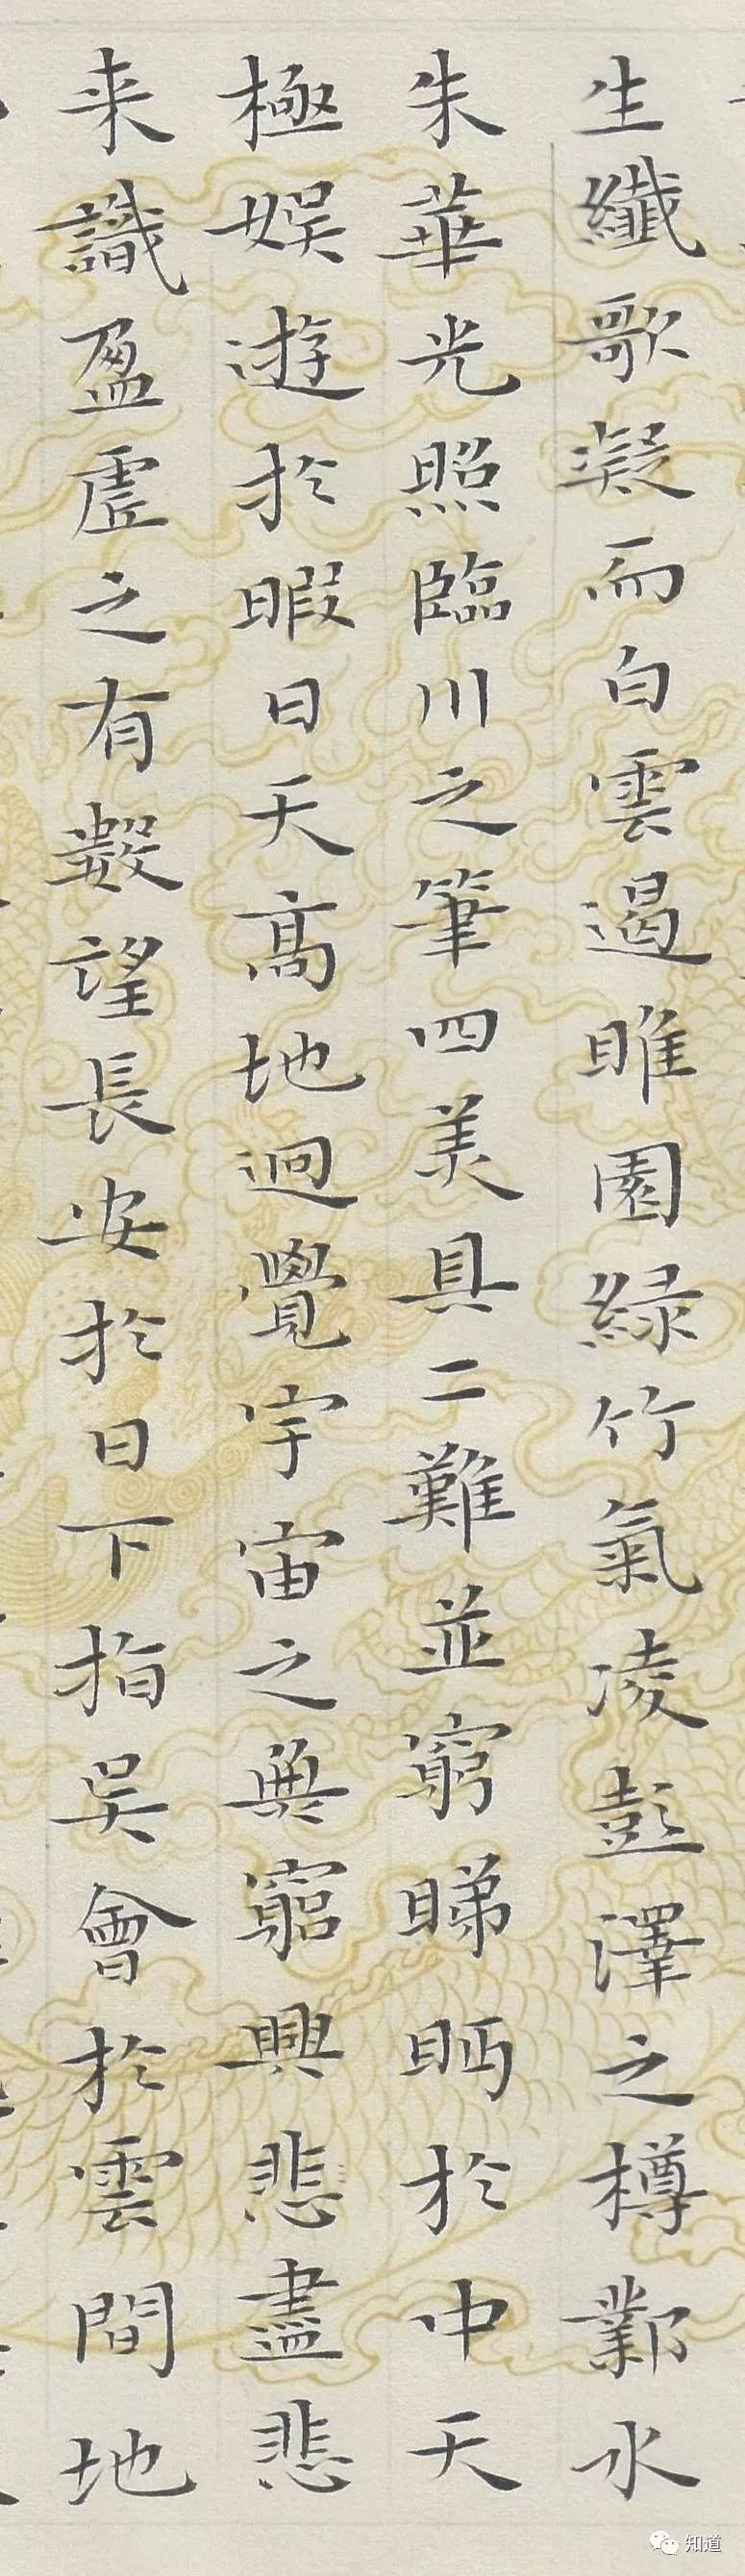 生纖歌凝而白雲遏睢園緑竹氣凌彭澤之樽鄴水
朱華光照臨川之筆四美具二難並窮睇眄於中天
極娱遊於暇日天高地迥覺宇宙之無窮興悲盡悲
来識盈虚之有數望長安於日下指吴會於雲間地
知道